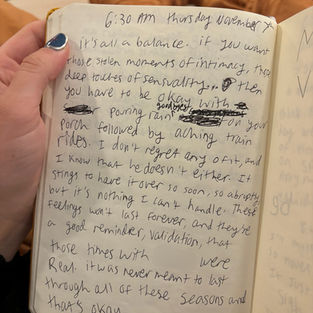 6:30 AM Thursday November
it's all a balance. if you want
those stolen moments of intimacy, those
deep touches of sensuality... then
you have to be okay with
goodbyes
pouring rain on your
porch followed by aching train
rides. I don't regret any of it, and
I know that he doesn't either. It
stings to have it over so soon, so abruptly
but it's nothing I can't handle. These
feelings won't last forever, and they're
a good reminder, validation, that
those times with were
Real. it was never meant to last
through all of these seasons and
that's okay